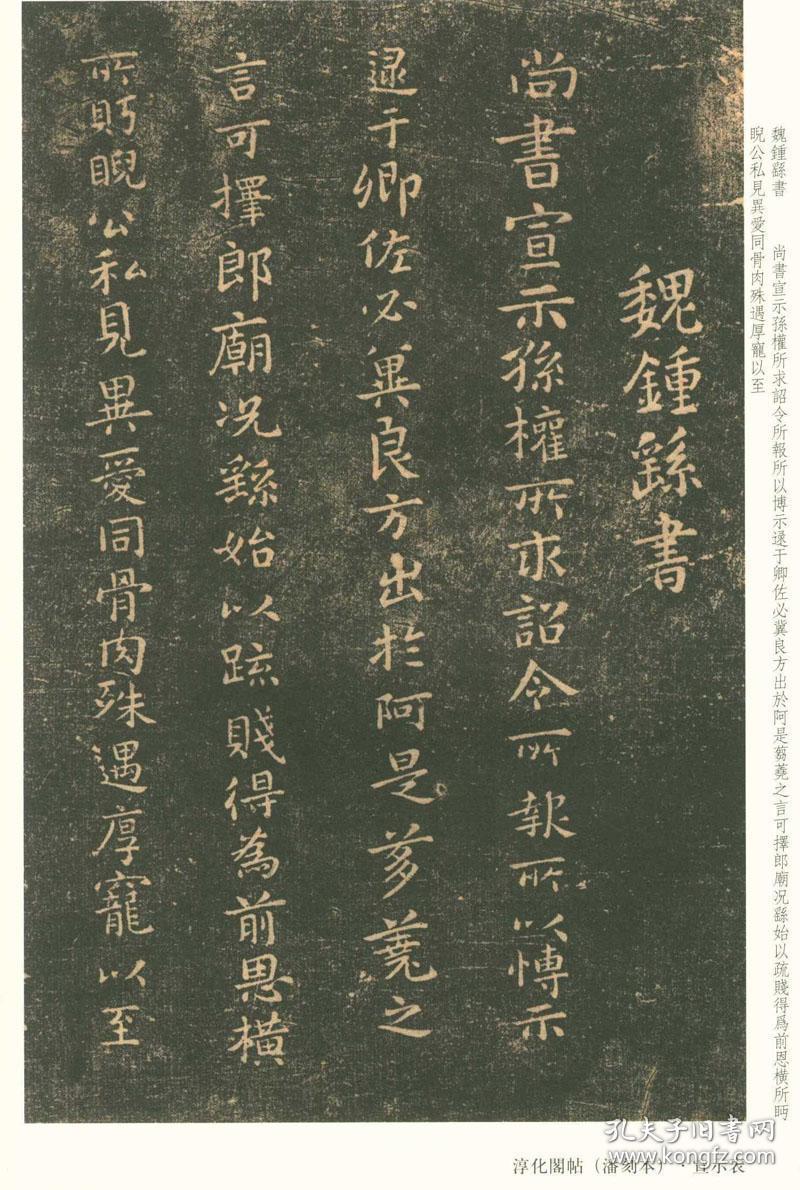 魏鍾繇書　尚書宣示孫權所求詔令所報所以博示逯于卿佐必冀良方出於阿是芻蕘之言可擇郎廟況繇始以疏賤得爲前恩橫所眄
睨公私見異愛同骨肉殊遇厚寵以至
魏鍾繇書
尚書宣示孫權所求詔令所報所以博示
逯于卿佐必兾良方出於阿是芻蕘之
言可擇郎廟况繇始以疏賤得為前恩橫
所眄睨公私見異愛同骨肉殊遇厚寵以至
淳化閣帖（潘刻本）·宣示表
孔夫子旧书网